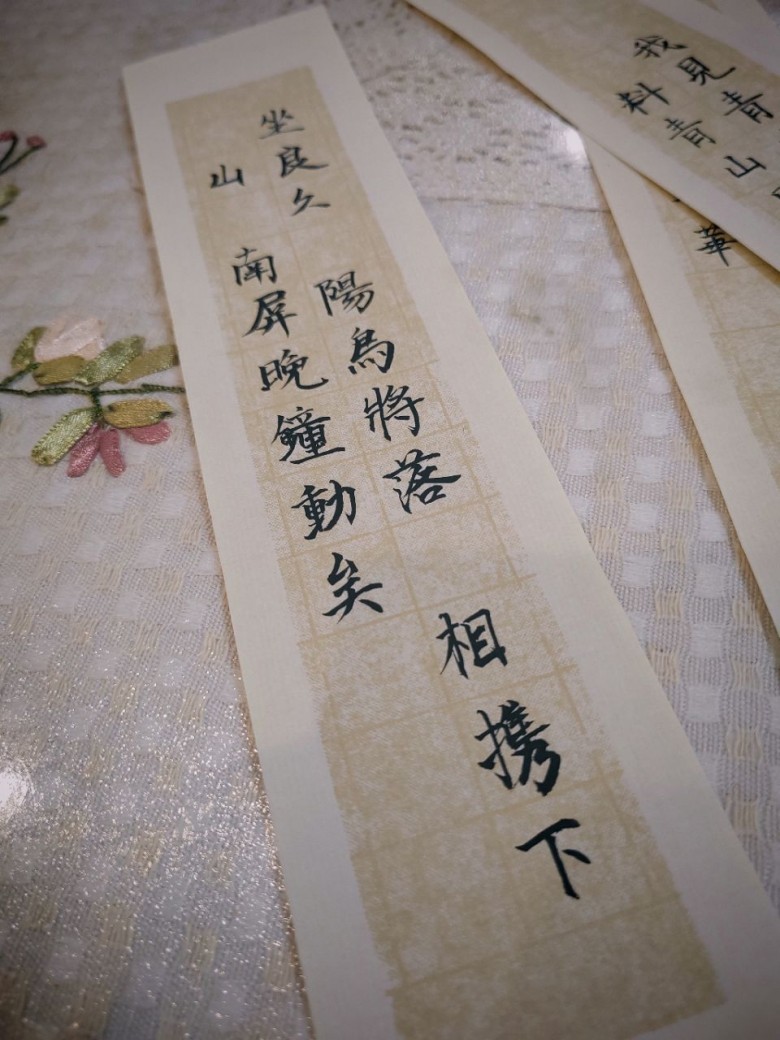 坐良久 陽烏將落 相携下
山 南屏晚鐘動矣
我見青
料青山
華